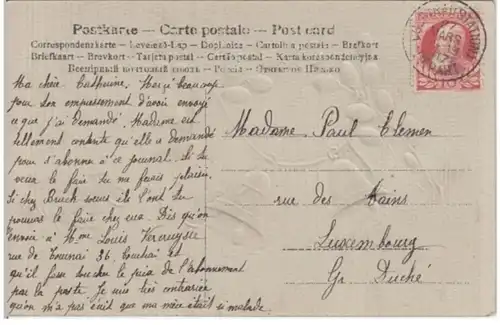 Postkarte – Carte postale – Post card
Correspondenzkarte – Levelező-Lap – Dopisnice – Cartolina postale – Brefkort
Briefkaart – Brevkort – Tarjeta postal – Cartão postal – Karta korespondencyjna
Ma chère Catherine. Merci beaucoup
pour ton empressement d'avoir envoyé
ce que j'ai demandé. Madame est
tellement contente qu'elle a demandé
pour s'abonner à ce journal. Si tu
veux le faire tu me ferais plaisir.
Si chez Bruck sœurs ils l'ont tu
pourras le faire chez eux. Dis qu'on
envoie à Mme Louis Vercruysse
rue de Tournai 36. Courtrai et
qu'il fasse toucher le prix de l'abonnement
par la poste. Je suis très contrariée
qu'on m'a pas écrit que ma mère était si malade.
Madame Paul Clemen
rue des Bains
Luxembourg
Gr. Duché
10